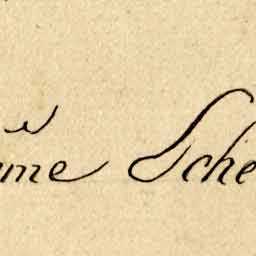 me Sche